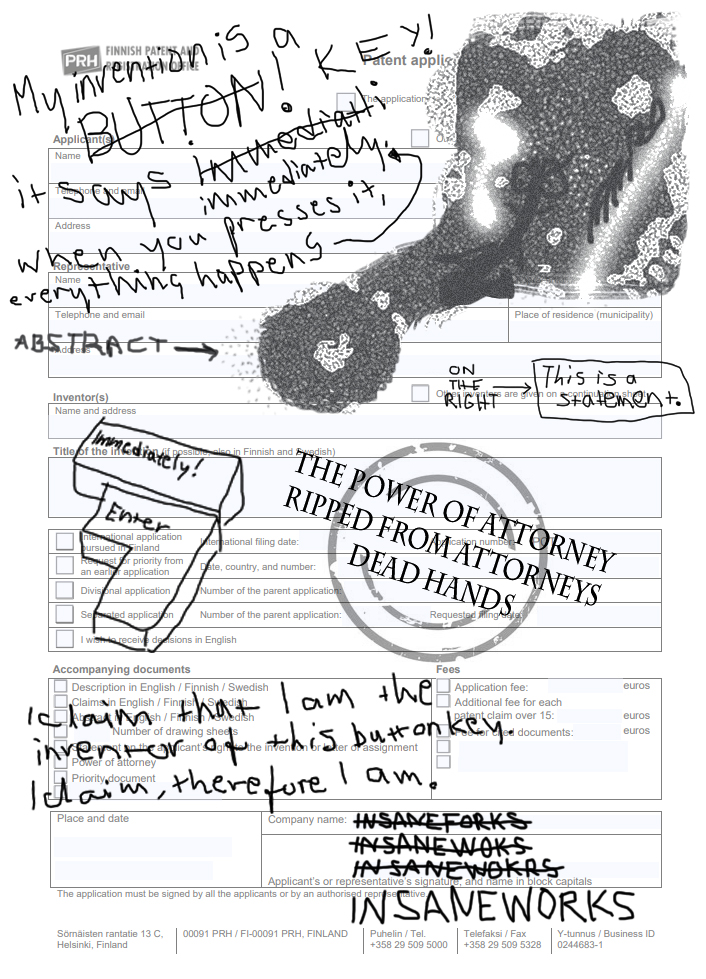 My invention is a
BUTTON! KEY!
it says Immediatli.
immediately.
when you presses it,
everything happens
PRH FINNISH PATENT AND
REGISTRATION OFFICE
Patent applic
The application
Applicant(s)
Name
Telephone and email
Address
Representative
Name
Telephone and email
Place of residence (municipality)
ABSTRACT
Address
ON
THE
RIGHT
This is a
statement.
Other inventors are given on a continuation sheet
Inventor(s)
Name and address
Title of the invention (if possible, also in Finnish and Swedish)
Immediately!
Enter
THE POWER OF ATTORNEY
RIPPED FROM ATTORNEYS
DEAD HANDS
International application
pursued in Finland
International filing date:
Application number:
Request for priority from
an earlier application
Date, country, and number:
Divisional application
Number of the parent application:
Separated application
Number of the parent application:
Requested filing date:
I wish to receive decisions in English
Accompanying documents
Fees
Description in English / Finnish / Swedish
Claims in English / Finnish / Swedish
Abstract in English / Finnish / Swedish
Number of drawing sheets
Statement on the applicant's right to the invention or letter of assignment
Power of attorney
Priority document
Application fee: euros
Additional fee for each
patent claim over 15: euros
Fee for cited documents: euros
I claim that I am the
inventor of this button key
I claim, therefore I am.
Place and date
Company name:
INSANEFORKS
INSANEWOKS
INSANEWOKRS
Applicant's or representative's signature, and name in block capitals
The application must be signed by all the applicants or by an authorised representative.
INSANEWORKS
Sörnäisten rantatie 13 C,
Helsinki, Finland
00091 PRH / FI-00091 PRH, FINLAND
Puhelin / Tel.
+358 29 509 5000
Telefaksi / Fax
+358 29 509 5328
Y-tunnus / Business ID
0244683-1